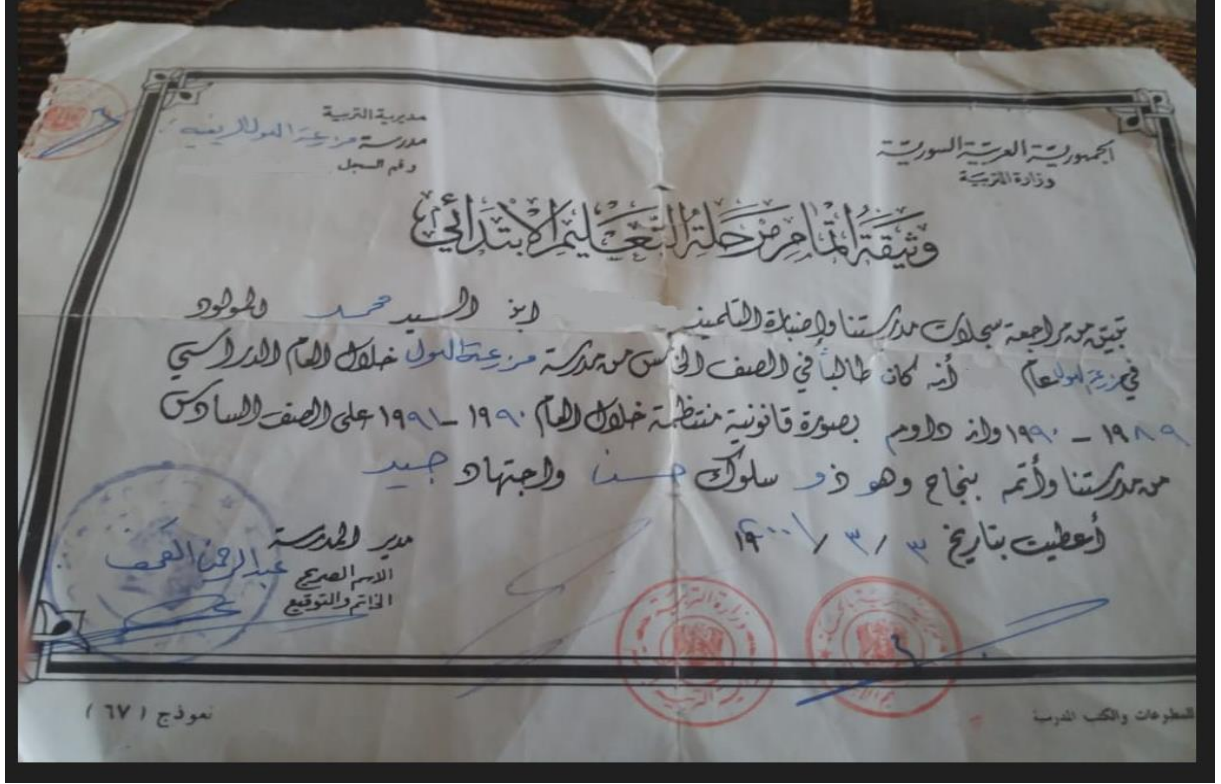 الجمهورية العربية السورية
وزارة التربية
مديرية التربية
مدرسة مزرعة الريفية
رقم السجل
وثيقة اتمام مرحلة التعليم الابتدائي
تبين من مراجعة سجلات مدرستنا واضبارة التلميذ ابن السيد محمد المولود
في عام أنه كان طالباً في الصف الخامس من مدرسة مزرعة خلال العام الدراسي
١٩٨٩ – ١٩٩٠ وانه داوم بصورة قانونية منتظمة خلال العام ١٩٩٠ – ١٩٩١ على الصف السادس
من مدرستنا وأتمه بنجاح وهو ذو سلوك حسن واجتهاد جيد
أعطيت بتاريخ ٣ / ٣ /
مدير المدرسة
الاسم الصريح عبد الرحمن
الخاتم والتوقيع
وزارة التربية
المطبوعات والكتب المدرسية
نموذج ( ٦٧ )